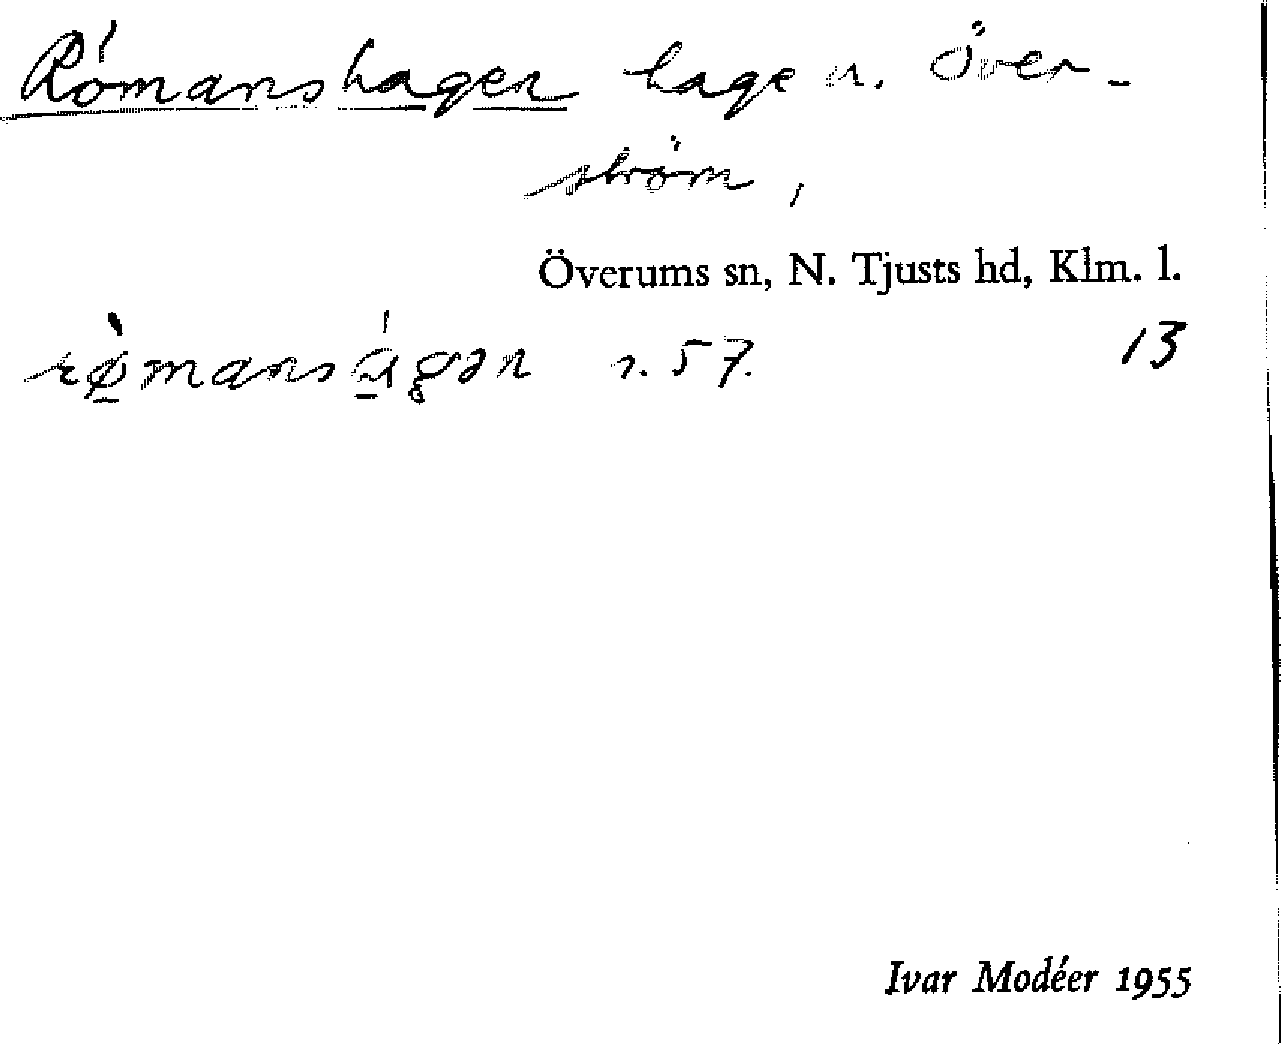 Rómanshagen hage u. Över-
ström,
Överums sn, N. Tjusts hd, Klm. l.
rø̀manságən s. 57. 13
Ivar Modéer 1955